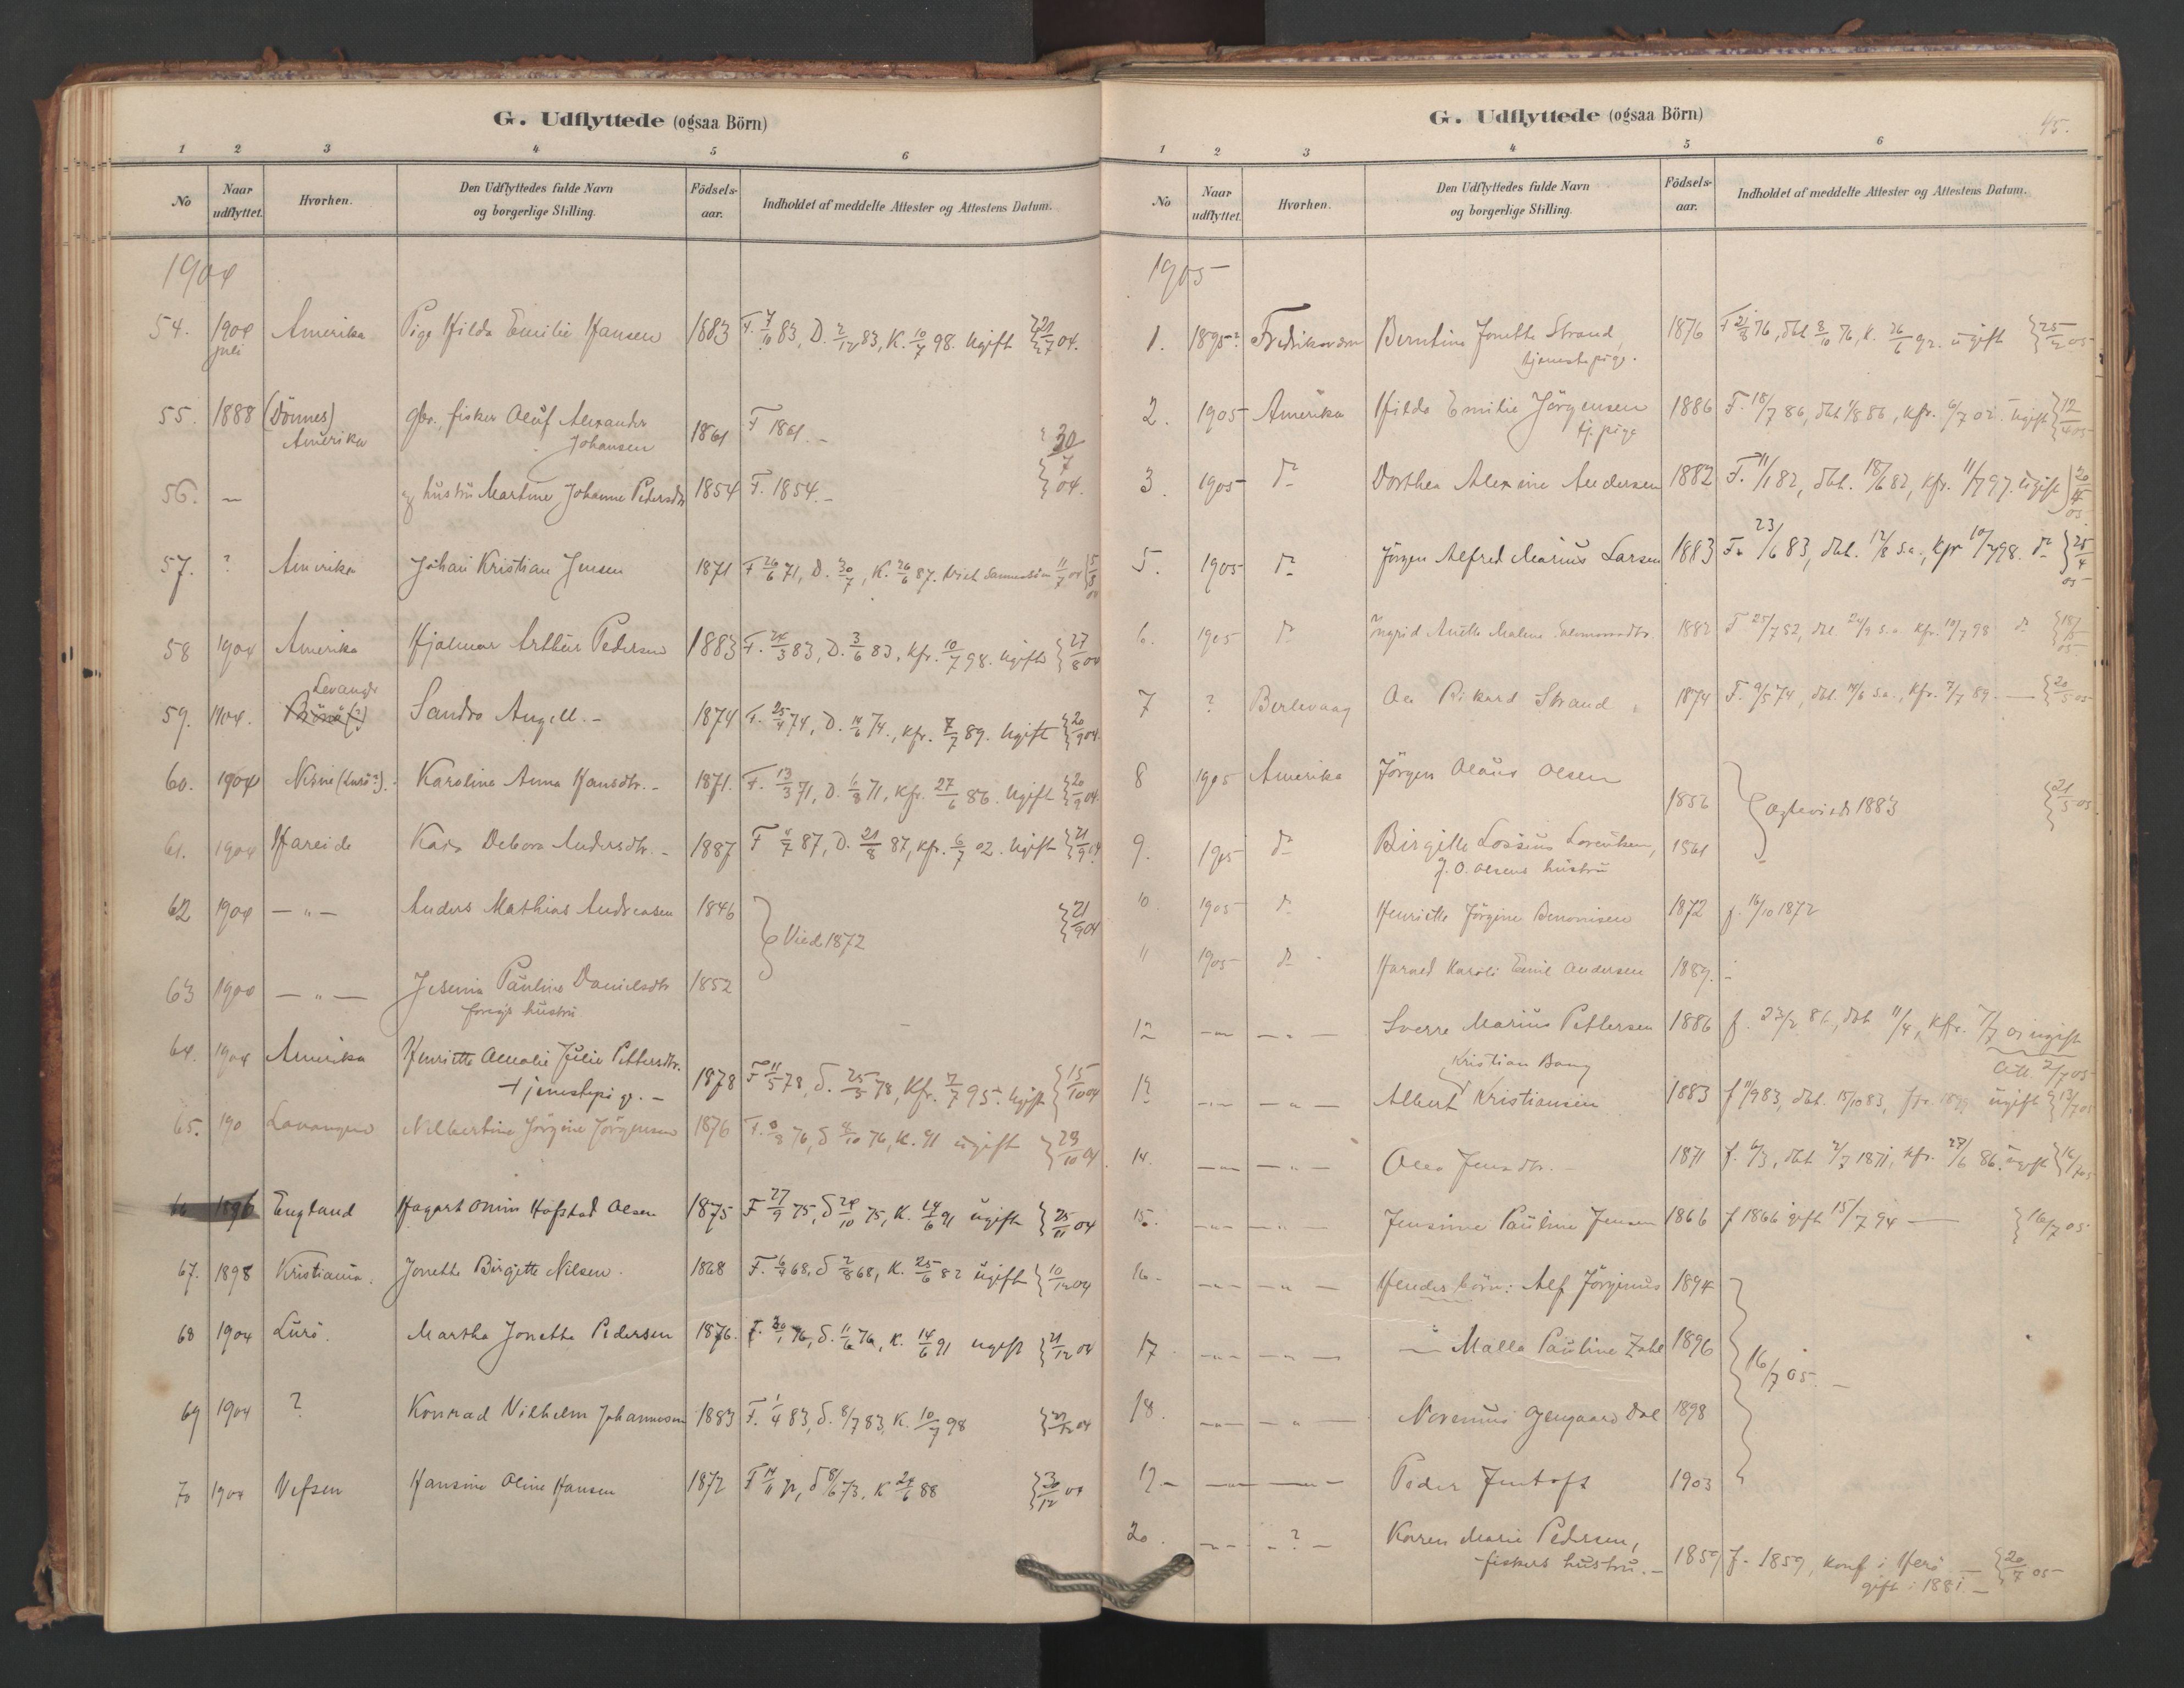 G. Udflyttede (ogsaa Börn)
1 2 3 4 5 6
No Naar udflyttet. Hvorhen. Den Udflyttedes fulde Navn og borgerlige Stilling. Födsels-aar. Indholdet af meddelte Attester og Attestens Datum.
1904
54. 1904 juli Amerika Pige Hilda Emilie Hansen 1883 F. 7/10 83, D. 2/12 83, K. 10/7 98. Ugift 21/7 04.
55. 1888 (Dönnes) Amerika gbr., fisker Oluf Alexander Johansen 1861 F 1861.-
56. — og hustru Martine Johanne Pedersdtr 1854 F. 1854.- 30/7 04.
57. ? Amerika Johan Kristian Jensen 1871 F 26/6 71, D. 30/7, K. 26/6 87.
58 1904 Amerika Hjalmar Arthur Pedersen 1883 F. 24/3 83, D. 3/6 83, Kfr. 10/7 98. Ugift 27/8 04
59. 1904. Levanger Sandra Angell.- 1874 F. 25/4 74, D. 14/6 74., Kfr. 7/7 89. Ugift 20/9 04.
60. 1904 (Lurö?). Karoline Anna Hansdtr.- 1871. F. 13/3 71, D. 6/8 71, Kfr. 27/6 86. Ugift 20/9 04.
61. 1904 Hareide Debora Andersdtr.- 1887 F 4/7 87, D. 21/8 87, Kfr. 6/7 02. Ugift 21/9 04
62 1904 — " — Anders Mathias Andreasen 1846 Viet 1872 21/9 04
63 1904 — " — Pauline Danielsdtr forrige hustru 1852
64. 1904 Amerika Henriette Amalie Julie Pettersdtr. tjenestepige.- 1878 F 11/5 78, D. 25/8 78, Kfr. 7/7 95. Ugift 15/10 04
65. 190 Jörgine Jörgensen 1876 F. 76, D 8/10 76, K. 91 ugift 29/10 04
66 1896 England Hagart Hofstad Olsen 1875 F 27/9 75, D 24/10 75, K. 14/6 91 ugift 25/11 04
67. 1898 Kristiania. Jonette Birgitte Nilsen. 1868 F. 6/4 68, D 2/8 68, K. 25/6 82 ugift 10/12 04
68 1904 Lurö. Martha Jonetta Pedersen 1876. F. 30/1 76, D. 11/6 76, K. 14/6 91 ugift 21/12 04
69 1904 ? Konrad Vilhelm Johannesen 1883 F. 1/4 83, D. 8/7 83, K. 10/7 98 27/12 04
70 1904 Vefsen Hansine Oline Hansen 1872 F 14/11 72, D 8/6 73, K 24/6 88 30/12 04
G. Udflyttede (ogsaa Börn)
45.
1 2 3 4 5 6
No Naar udflyttet. Hvorhen. Den Udflyttedes fulde Navn og borgerlige Stilling. Födsels-aar. Indholdet af meddelte Attester og Attestens Datum.
1905
1. 1895? Berntine Jonette Strand, tjenestepige. 1876 F 21/8 76, dbt 8/10 76, K. 26/6 92. ugift 25/2 05
2. 1905 Amerika Hilda Emilie Jörgensen tj. pige 1886 F. 18/7 86, dbt 1/8 86, Kfr. 6/7 02. Ugift 12/4 05
3. 1905 do Dorthea Alexine Andersen 1882 F. 11/1 82, dbt. 18/6 82, Kfr. 11/7 97. Ugift 20/4 05.
5. 1905 do Jörgen Alfred Marius Larsen 1883 F. 23/6 83, dbt. 12/8 s.a., Kfr 10/7 98. do 25/4 05
6. 1905 do Ingrid Anette Malene Salomonsdtr. 1882 F 25/7 82, dbt. 24/9 s.a. Kfr. 10/7 98 do 18/5 05.
7 ? Berlevaag Ole Rikard Strand 1874 F. 9/5 74, dbt. 14/6 s.a., Kfr. 7/7 89. — 20/5 05
8 1905 Amerika Jörgen Olaus Olsen 1852 Ægteviet 1883 21/5 05
9. 1905 do Birgitte Lossius Lorentsen, J. O. Olsens hustru 1861
10. 1905 do Henriette Jörgine Benonisen 1872 f. 16/10 1872
11 1905 do Harald Karoli Emil Andersen 1889.-
12 —"— —"— Sverre Marius Pettersen 1886 f. 23/2 86, dbt 11/4, Kfr. 7/7 01 ugift Att. 2/7 05
13 —"— —"— Albert Kristian Bang Kristiansen 1883 f 11/9 83, dbt. 15/10 83, ugift 13/7 05
14. —"— —"— Olea Jensdtr.- 1871 f. 6/3, dbt. 2/7 1871, Kfr. 27/6 86. ugift 16/7 05
15. —"— —"— Jensine Pauline Jensen 1866 f 1866 gift 15/7 94 — 16/7 05
16.- —"— —"— Hendes börn: Alf Jörginus 1894
17 —"— —"— —"— Malla Pauline Zahl 1896 16/7 05.-
18. —"— —"— Norenius Dal 1898
19- —"— —"— Peder Jentoft 1903
20. —"— ? Karen Marie Pedersen, fiskers hustru.- 1859 f. 1859, konf i Herö — gift i 1881 — 20/7 05